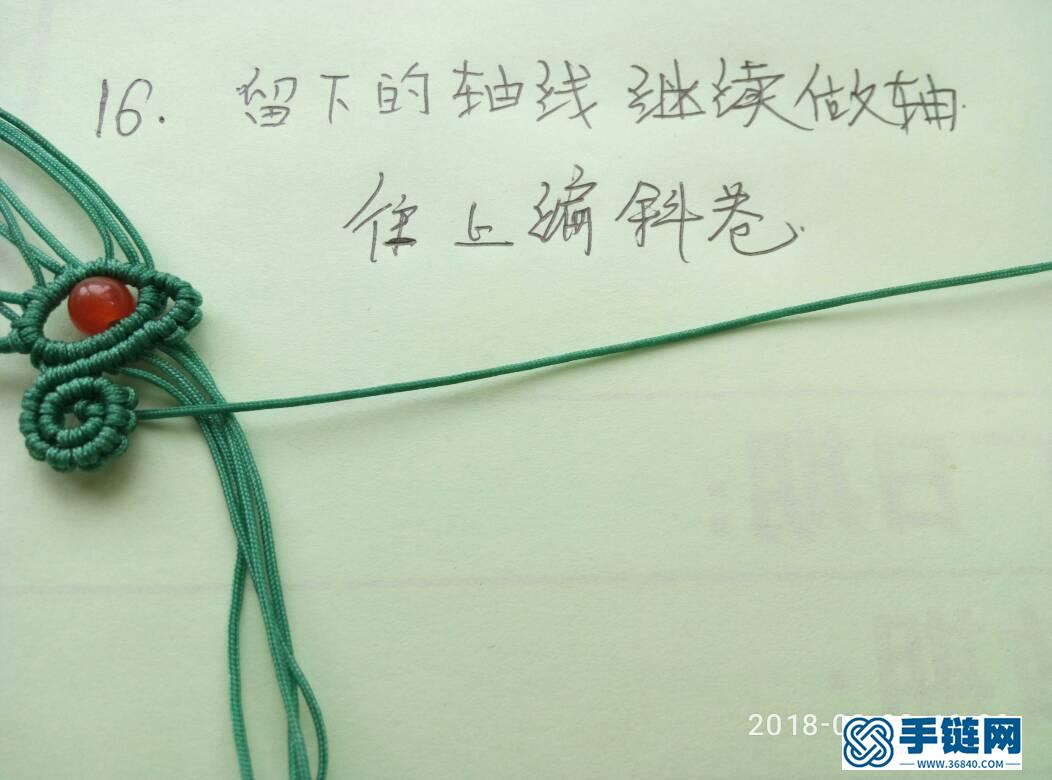 16. 留下的轴线继续做轴.
往上编斜卷.
日期:
2018-0
手链网
WWW.36840.COM